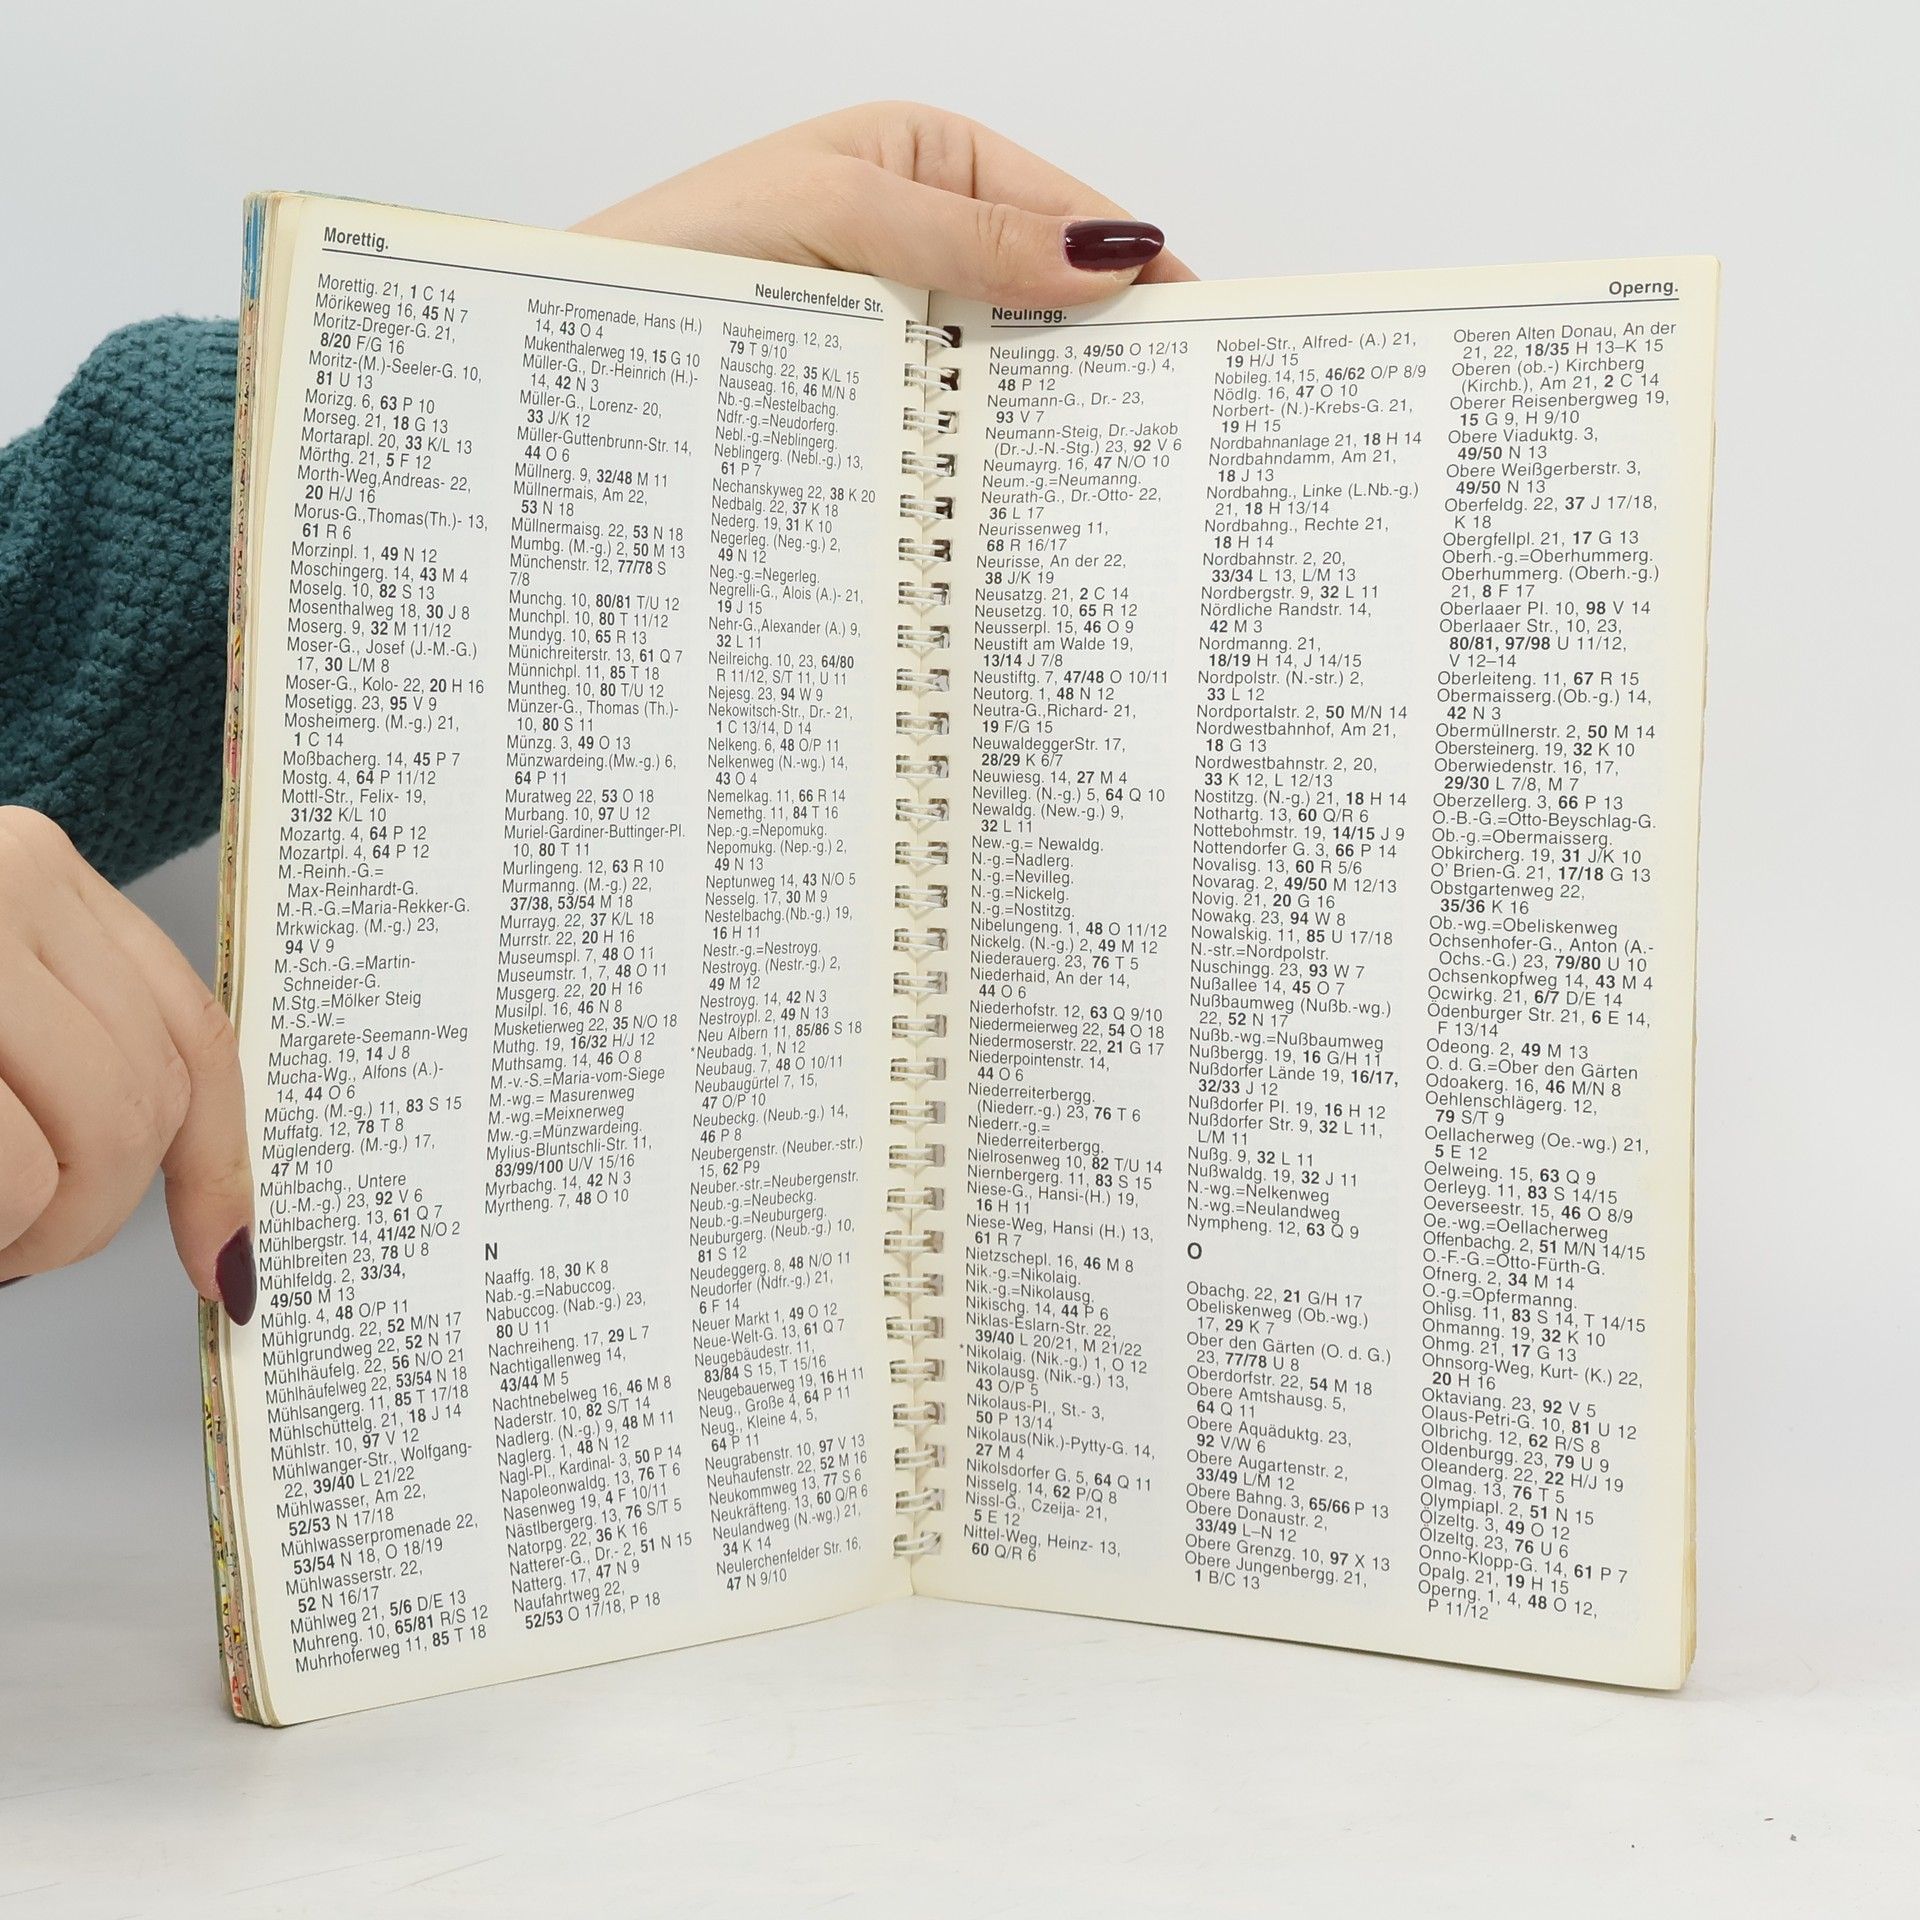 Morettig.
Neulerchenfelder Str.
Morettig. 21, 1 C 14
Mörikeweg 16, 45 N 7
Moritz-Dreger-G. 21,
8/20 F/G 16
Moritz-(M.)-Seeler-G. 10,
81 U 13
Morizg. 6, 63 P 10
Morseg. 21, 18 G 13
Mortarapl. 20, 33 K/L 13
Mörthg. 21, 5 F 12
Morth-Weg,Andreas- 22,
20 H/J 16
Morus-G.,Thomas(Th.)- 13,
61 R 6
Morzinpl. 1, 49 N 12
Moschingerg. 14, 43 M 4
Moselg. 10, 82 S 13
Mosenthalweg 18, 30 J 8
Moserg. 9, 32 M 11/12
Moser-G., Josef (J.-M.-G.)
17, 30 L/M 8
Moser-G., Kolo- 22, 20 H 16
Mosetigg. 23, 95 V 9
Mosheimerg. (M.-g.) 21,
1 C 14
Moßbacherg. 14, 45 P 7
Mostg. 4, 64 P 11/12
Mottl-Str., Felix- 19,
31/32 K/L 10
Mozartg. 4, 64 P 12
Mozartpl. 4, 64 P 12
M.-Reinh.-G.=
Max-Reinhardt-G.
M.-R.-G.=Maria-Rekker-G.
Mrkwickag. (M.-g.) 23,
94 V 9
M.-Sch.-G.=Martin-
Schneider-G.
M.Stg.=Mölker Steig
M.-S.-W.=
Margarete-Seemann-Weg
Muchag. 19, 14 J 8
Mucha-Wg., Alfons (A.)-
14, 44 O 6
Müchg. (M.-g.) 11, 83 S 15
Muffatg. 12, 78 T 8
Müglenderg. (M.-g.) 17,
47 M 10
Mühlbachg., Untere
(U.-M.-g.) 23, 92 V 6
Mühlbacherg. 13, 61 Q 7
Mühlbergstr. 14, 41/42 N/O 2
Mühlbreiten 23, 78 U 8
Mühlfeldg. 2, 33/34,
49/50 M 13
Mühlg. 4, 48 O/P 11
Mühlgrundg. 22, 52 M/N 17
Mühlgrundweg 22, 52 N 17
Mühlhäufelg. 22, 56 N/O 21
Mühlhäufelweg 22, 53/54 N 18
Mühlsangerg. 11, 85 T 17/18
Mühlschüttelg. 21, 18 J 14
Mühlstr. 10, 97 V 12
Mühlwanger-Str., Wolfgang-
22, 39/40 L 21/22
Mühlwasser, Am 22,
52/53 N 17/18
Mühlwasserpromenade 22,
53/54 N 18, O 18/19
Mühlwasserstr. 22,
52 N 16/17
Mühlweg 21, 5/6 D/E 13
Muhreng. 10, 65/81 R/S 12
Muhrhoferweg 11, 85 T 18
Muhr-Promenade, Hans (H.)
14, 43 O 4
Mukenthalerweg 19, 15 G 10
Müller-G., Dr.-Heinrich (H.)-
14, 42 N 3
Müller-G., Lorenz- 20,
33 J/K 12
Müller-Guttenbrunn-Str. 14,
44 O 6
Müllnerg. 9, 32/48 M 11
Müllnermais, Am 22,
53 N 18
Müllnermaisg. 22, 53 N 18
Mumbg. (M.-g.) 2, 50 M 13
Münchenstr. 12, 77/78 S
7/8
Munchg. 10, 80/81 T/U 12
Munchpl. 10, 80 T 11/12
Mundyg. 10, 65 R 13
Münichreiterstr. 13, 61 Q 7
Münnichpl. 11, 85 T 18
Muntheg. 10, 80 T/U 12
Münzer-G., Thomas (Th.)-
10, 80 S 11
Münzg. 3, 49 O 13
Münzwardeing.(Mw.-g.) 6,
64 P 11
Muratweg 22, 53 O 18
Murbang. 10, 97 U 12
Muriel-Gardiner-Buttinger-Pl.
10, 80 T 11
Murlingeng. 12, 63 R 10
Murmanng. (M.-g.) 22,
37/38, 53/54 M 18
Murrayg. 22, 37 K/L 18
Murrstr. 22, 20 H 16
Museumspl. 7, 48 O 11
Museumstr. 1, 7, 48 O 11
Musgerg. 22, 20 H 16
Musilpl. 16, 46 N 8
Musketierweg 22, 35 N/O 18
Muthg. 19, 16/32 H/J 12
Muthsamg. 14, 46 O 8
M.-v.-S.=Maria-vom-Siege
M.-wg.= Masurenweg
M.-wg.=Meixnerweg
Mw.-g.=Münzwardeing.
Mylius-Bluntschli-Str. 11,
83/99/100 U/V 15/16
Myrbachg. 14, 42 N 3
Myrtheng. 7, 48 O 10
N
Naaffg. 18, 30 K 8
Nab.-g.=Nabuccog.
Nabuccog. (Nab.-g.) 23,
80 U 11
Nachreiheng. 17, 29 L 7
Nachtigallenweg 14,
43/44 M 5
Nachtnebelweg 16, 46 M 8
Naderstr. 10, 82 S/T 14
Nadlerg. (N.-g.) 9, 48 M 11
Naglerg. 1, 48 N 12
Nagl-Pl., Kardinal- 3, 50 P 14
Napoleonwaldg. 13, 76 T 6
Nasenweg 19, 4 F 10/11
Nästlbergerg. 13, 76 S/T 5
Natorpg. 22, 36 K 16
Natterer-G., Dr.- 2, 51 N 15
Natterg. 17, 47 N 9
Naufahrtweg 22,
52/53 O 17/18, P 18
Nauheimerg. 12, 23,
79 T 9/10
Nauschg. 22, 35 K/L 15
Nauseag. 16, 46 M/N 8
Nb.-g.=Nestelbachg.
Ndfr.-g.=Neudorferg.
Nebl.-g.=Neblingerg.
Neblingerg. (Nebl.-g.) 13,
61 P 7
Nechanskyweg 22, 38 K 20
Nedbalg. 22, 37 K 18
Nederg. 19, 31 K 10
Negerleg. (Neg.-g.) 2,
49 N 12
Neg.-g.=Negerleg.
Negrelli-G., Alois (A.)- 21,
19 J 15
Nehr-G.,Alexander (A.) 9,
32 L 11
Neilreichg. 10, 23, 64/80
R 11/12, S/T 11, U 11
Nejesg. 23, 94 W 9
Nekowitsch-Str., Dr.- 21,
1 C 13/14, D 14
Nelkeng. 6, 48 O/P 11
Nelkenweg (N.-wg.) 14,
43 O 4
Nemelkag. 11, 66 R 14
Nemethg. 11, 84 T 16
Nep.-g.=Nepomukg.
Nepomukg. (Nep.-g.) 2,
49 N 13
Neptunweg 14, 43 N/O 5
Nesselg. 17, 30 M 9
Nestelbachg.(Nb.-g.) 19,
16 H 11
Nestr.-g.=Nestroyg.
Nestroyg. (Nestr.-g.) 2,
49 M 12
Nestroyg. 14, 42 N 3
Nestroypl. 2, 49 N 13
Neu Albern 11, 85/86 S 18
*Neubadg. 1, N 12
Neubaug. 7, 48 O 10/11
Neubaugürtel 7, 15,
47 O/P 10
Neubeckg. (Neub.-g.) 14,
46 P 8
Neubergenstr. (Neuber.-str.)
15, 62 P9
Neuber.-str.=Neubergenstr.
Neub.-g.=Neubeckg.
Neub.-g.=Neuburgerg.
Neuburgerg. (Neub.-g.) 10,
81 S 12
Neudeggerg. 8, 48 N/O 11
Neudorfer (Ndfr.-g.) 21,
6 F 14
Neuer Markt 1, 49 O 12
Neue-Welt-G. 13, 61 Q 7
Neugebäudestr. 11,
83/84 S 15, T 15/16
Neugebauerweg 19, 16 H 11
Neug., Große 4, 64 P 11
Neug., Kleine 4, 5,
64 P 11
Neugrabenstr. 10, 97 V 13
Neuhaufenstr. 22, 52 M 16
Neukommweg 13, 77 S 6
Neukräfteng. 13, 60 Q/R 6
Neulandweg (N.-wg.) 21,
34 K 14
Neulerchenfelder Str. 16,
47 N 9/10
Neulingg.
Operng.
Neulingg. 3, 49/50 O 12/13
Neumanng. (Neum.-g.) 4,
48 P 12
Neumann-G., Dr.- 23,
93 V 7
Neumann-Steig, Dr.-Jakob
(Dr.-J.-N.-Stg.) 23, 92 V 6
Neumayrg. 16, 47 N/O 10
Neum.-g.=Neumanng.
Neurath-G., Dr.-Otto- 22,
36 L 17
Neurissenweg 11,
68 R 16/17
Neurisse, An der 22,
38 J/K 19
Neusatzg. 21, 2 C 14
Neusetzg. 10, 65 R 12
Neusserpl. 15, 46 O 9
Neustift am Walde 19,
13/14 J 7/8
Neustiftg. 7, 47/48 O 10/11
Neutorg. 1, 48 N 12
Neutra-G.,Richard- 21,
19 F/G 15
NeuwaldeggerStr. 17,
28/29 K 6/7
Neuwiesg. 14, 27 M 4
Nevilleg. (N.-g.) 5, 64 Q 10
Newaldg. (New.-g.) 9,
32 L 11
New.-g.= Newaldg.
N.-g.=Nadlerg.
N.-g.=Nevilleg.
N.-g.=Nickelg.
N.-g.=Nostitzg.
Nibelungeng. 1, 48 O 11/12
Nickelg. (N.-g.) 2, 49 M 12
Niederauerg. 23, 76 T 5
Niederhaid, An der 14,
44 O 6
Niederhofstr. 12, 63 Q 9/10
Niedermeierweg 22, 54 O 18
Niedermoserstr. 22, 21 G 17
Niederpointenstr. 14,
44 O 6
Niederreiterbergg.
(Niederr.-g.) 23, 76 T 6
Niederr.-g.=
Niederreiterbergg.
Nielrosenweg 10, 82 T/U 14
Niernbergerg. 11, 83 S 15
Niese-G., Hansi-(H.) 19,
16 H 11
Niese-Weg, Hansi (H.) 13,
61 R 7
Nietzschepl. 16, 46 M 8
Nik.-g.=Nikolaig.
Nik.-g.=Nikolausg.
Nikischg. 14, 44 P 6
Niklas-Eslarn-Str. 22,
39/40 L 20/21, M 21/22
*Nikolaig. (Nik.-g.) 1, O 12
Nikolausg. (Nik.-g.) 13,
43 O/P 5
Nikolaus-Pl., St.- 3,
50 P 13/14
Nikolaus(Nik.)-Pytty-G. 14,
27 M 4
Nikolsdorfer G. 5, 64 Q 11
Nisselg. 14, 62 P/Q 8
Nissl-G., Czeija- 21,
5 E 12
Nittel-Weg, Heinz- 13,
60 Q/R 6
Nobel-Str., Alfred- (A.) 21,
19 H/J 15
Nobileg. 14,15, 46/62 O/P 8/9
Nödlg. 16, 47 O 10
Norbert- (N.)-Krebs-G. 21,
19 H 15
Nordbahnanlage 21, 18 H 14
Nordbahndamm, Am 21,
18 J 13
Nordbahng., Linke (L.Nb.-g.)
21, 18 H 13/14
Nordbahng., Rechte 21,
18 H 14
Nordbahnstr. 2, 20,
33/34 L 13, L/M 13
Nordbergstr. 9, 32 L 11
Nördliche Randstr. 14,
42 M 3
Nordmanng. 21,
18/19 H 14, J 14/15
Nordpolstr. (N.-str.) 2,
33 L 12
Nordportalstr. 2, 50 M/N 14
Nordwestbahnhof, Am 21,
18 G 13
Nordwestbahnstr. 2, 20,
33 K 12, L 12/13
Nostitzg. (N.-g.) 21, 18 H 14
Nothartg. 13, 60 Q/R 6
Nottebohmstr. 19, 14/15 J 9
Nottendorfer G. 3, 66 P 14
Novalisg. 13, 60 R 5/6
Novarag. 2, 49/50 M 12/13
Novig. 21, 20 G 16
Nowakg. 23, 94 W 8
Nowalskig. 11, 85 U 17/18
N.-str.=Nordpolstr.
Nuschingg. 23, 93 W 7
Nußallee 14, 45 O 7
Nußbaumweg (Nußb.-wg.)
22, 52 N 17
Nußb.-wg.=Nußbaumweg
Nußbergg. 19, 16 G/H 11
Nußdorfer Lände 19, 16/17,
32/33 J 12
Nußdorfer Pl. 19, 16 H 12
Nußdorfer Str. 9, 32 L 11,
L/M 11
Nußg. 9, 32 L 11
Nußwaldg. 19, 32 J 11
N.-wg.=Nelkenweg
N.-wg.=Neulandweg
Nympheng. 12, 63 Q 9
O
Obachg. 22, 21 G/H 17
Obeliskenweg (Ob.-wg.)
17, 29 K 7
Ober den Gärten (O. d. G.)
23, 77/78 U 8
Oberdorfstr. 22, 54 M 18
Obere Amtshausg. 5,
64 Q 11
Obere Aquäduktg. 23,
92 V/W 6
Obere Augartenstr. 2,
33/49 L/M 12
Obere Bahng. 3, 65/66 P 13
Obere Donaustr. 2,
33/49 L–N 12
Obere Grenzg. 10, 97 X 13
Obere Jungenbergg. 21,
1 B/C 13
Oberen Alten Donau, An der
21, 22, 18/35 H 13–K 15
Oberen (ob.-) Kirchberg
(Kirchb.), Am 21, 2 C 14
Oberer Reisenbergweg 19,
15 G 9, H 9/10
Obere Viaduktg. 3,
49/50 N 13
Obere Weißgerberstr. 3,
49/50 N 13
Oberfeldg. 22, 37 J 17/18,
K 18
Obergfellpl. 21, 17 G 13
Oberh.-g.=Oberhummerg.
Oberhummerg. (Oberh.-g.)
21, 8 F 17
Oberlaaer Pl. 10, 98 V 14
Oberlaaer Str., 10, 23,
80/81, 97/98 U 11/12,
V 12–14
Oberleiteng. 11, 67 R 15
Obermaisserg.(Ob.-g.) 14,
42 N 3
Obermüllnerstr. 2, 50 M 14
Obersteinerg. 19, 32 K 10
Oberwiedenstr. 16, 17,
29/30 L 7/8, M 7
Oberzellerg. 3, 66 P 13
O.-B.-G.=Otto-Beyschlag-G.
Ob.-g.=Obermaisserg.
Obkircherg. 19, 31 J/K 10
O' Brien-G. 21, 17/18 G 13
Obstgartenweg 22,
35/36 K 16
Ob.-wg.=Obeliskenweg
Ochsenhofer-G., Anton (A.-
Ochs.-G.) 23, 79/80 U 10
Ochsenkopfweg 14, 43 M 4
Ocwirkg. 21, 6/7 D/E 14
Ödenburger Str. 21, 6 E 14,
F 13/14
Odeong. 2, 49 M 13
O. d. G.=Ober den Gärten
Odoakerg. 16, 46 M/N 8
Oehlenschlägerg. 12,
79 S/T 9
Oellacherweg (Oe.-wg.) 21,
5 E 12
Oelweing. 15, 63 Q 9
Oerleyg. 11, 83 S 14/15
Oeverseestr. 15, 46 O 8/9
Oe.-wg.=Oellacherweg
Offenbachg. 2, 51 M/N 14/15
O.-F.-G.=Otto-Fürth-G.
Ofnerg. 2, 34 M 14
O.-g.=Opfermanng.
Ohlisg. 11, 83 S 14, T 14/15
Ohmanng. 19, 32 K 10
Ohmg. 21, 17 G 13
Ohnsorg-Weg, Kurt- (K.) 22,
20 H 16
Oktaviang. 23, 92 V 5
Olaus-Petri-G. 10, 81 U 12
Olbrichg. 12, 62 R/S 8
Oldenburgg. 23, 79 U 9
Oleanderg. 22, 22 H/J 19
Olmag. 13, 76 T 5
Olympiapl. 2, 51 N 15
Ölzeltg. 3, 49 O 12
Ölzeltg. 23, 76 U 6
Onno-Klopp-G. 14, 61 P 7
Opalg. 21, 19 H 15
Operng. 1, 4, 48 O 12,
P 11/12